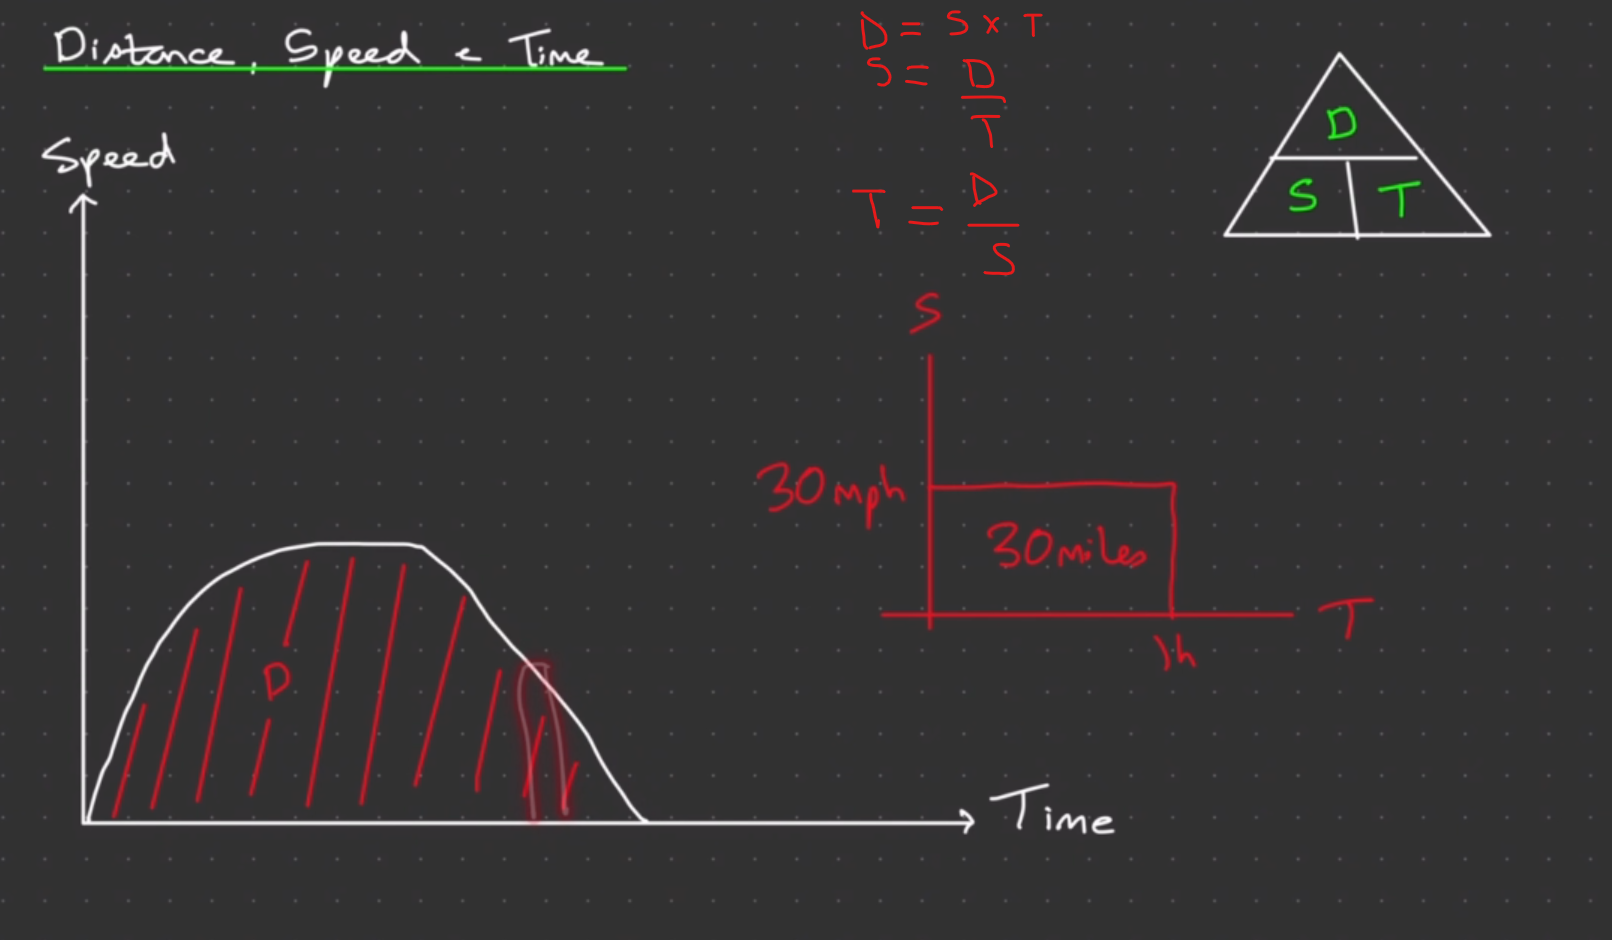 Distance, Speed & Time
D = S x T
S = D
T
T = D
S
D
S T
Speed
S
30mph
30miles
T
1h
D
Time